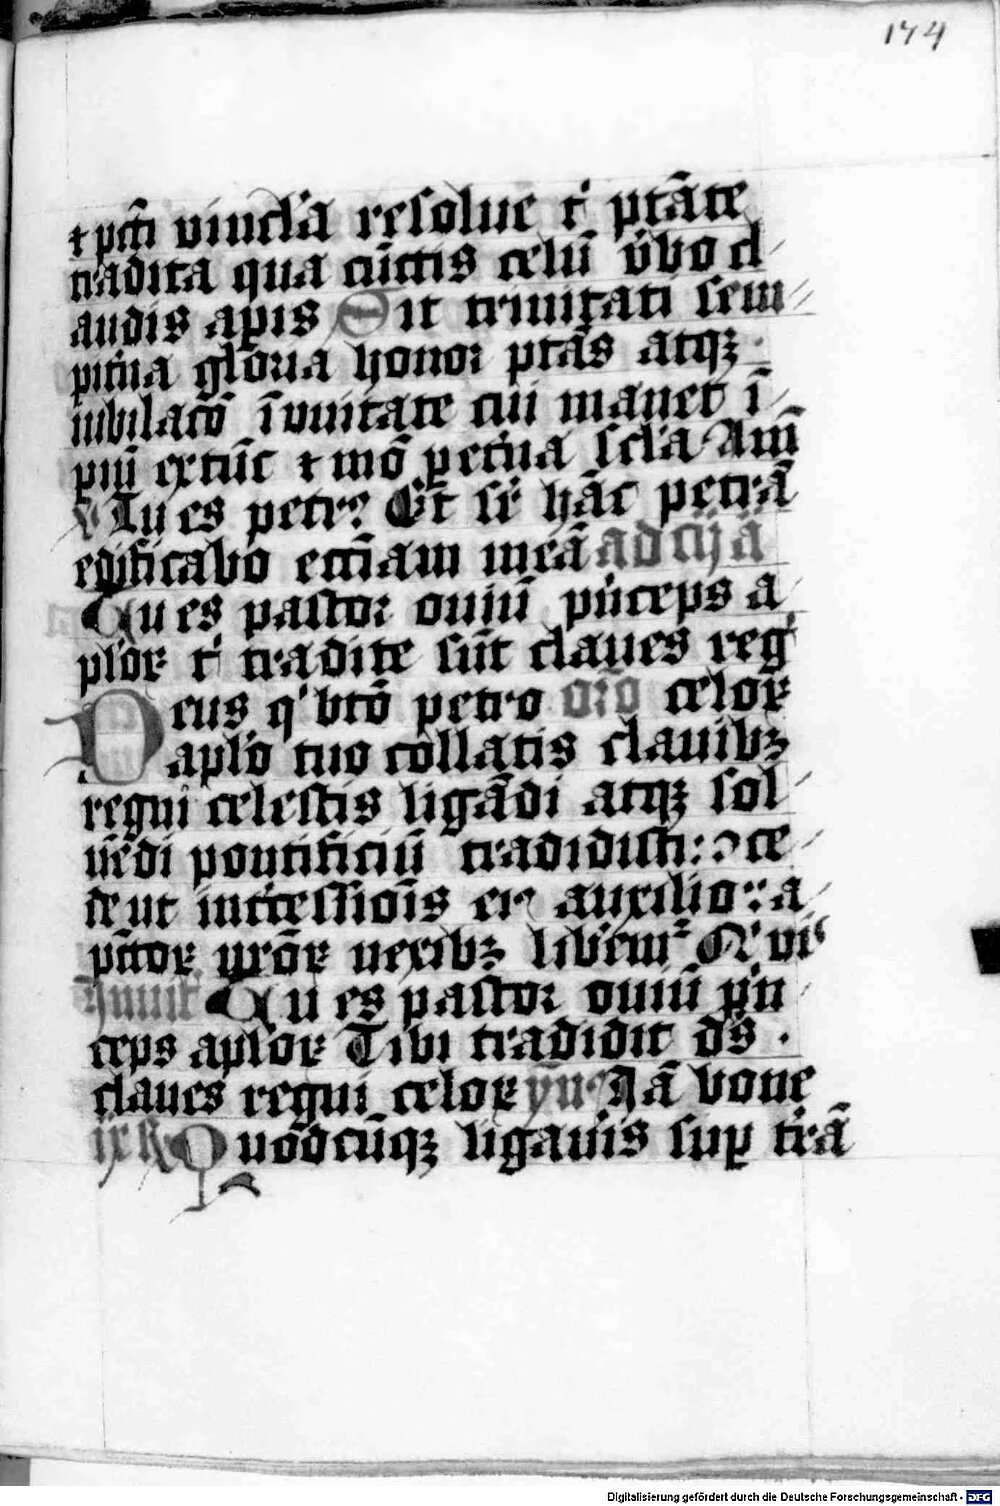 174
⁊ pctī vincl'a resolue t' ptāte
tradita qua cūctis celū v'bo cl
audis apis Sit trinitati sem
pit'na gl'oria honor ptās atqꝫ
iubilacō ī vnitate cui manet ī
piū extūc ⁊ mō pet'na sc'la Am̄
Tu es petr9 Et sr̄ hāc petrā
edificabo eccīam meā ad cij ā
Tu es pastor ouiū p'nceps a
pl'oꝝ t' tradite sūt claues reg'
Deus q' btō petro orō celoꝝ
apl'o tuo collatis clauibꝫ
regni celestis ligādi atqꝫ sol
uēdi pontificiū tradidisti: ↄce
de ut int'cessiōis ei9 auxilio: a
pctoꝝ nr̄oꝝ nexibꝫ lib'emr Q' vi
Inuit Tu es pastor ouiū p'n
ceps apl'oꝝ Tibi tradidit ds .
claues regni celoꝝ yn9 Iā bone
ix R Quodcūqꝫ ligau'is sup t'rā
Digitalisierung gefördert durch die Deutsche Forschungsgemeinschaft - DFG